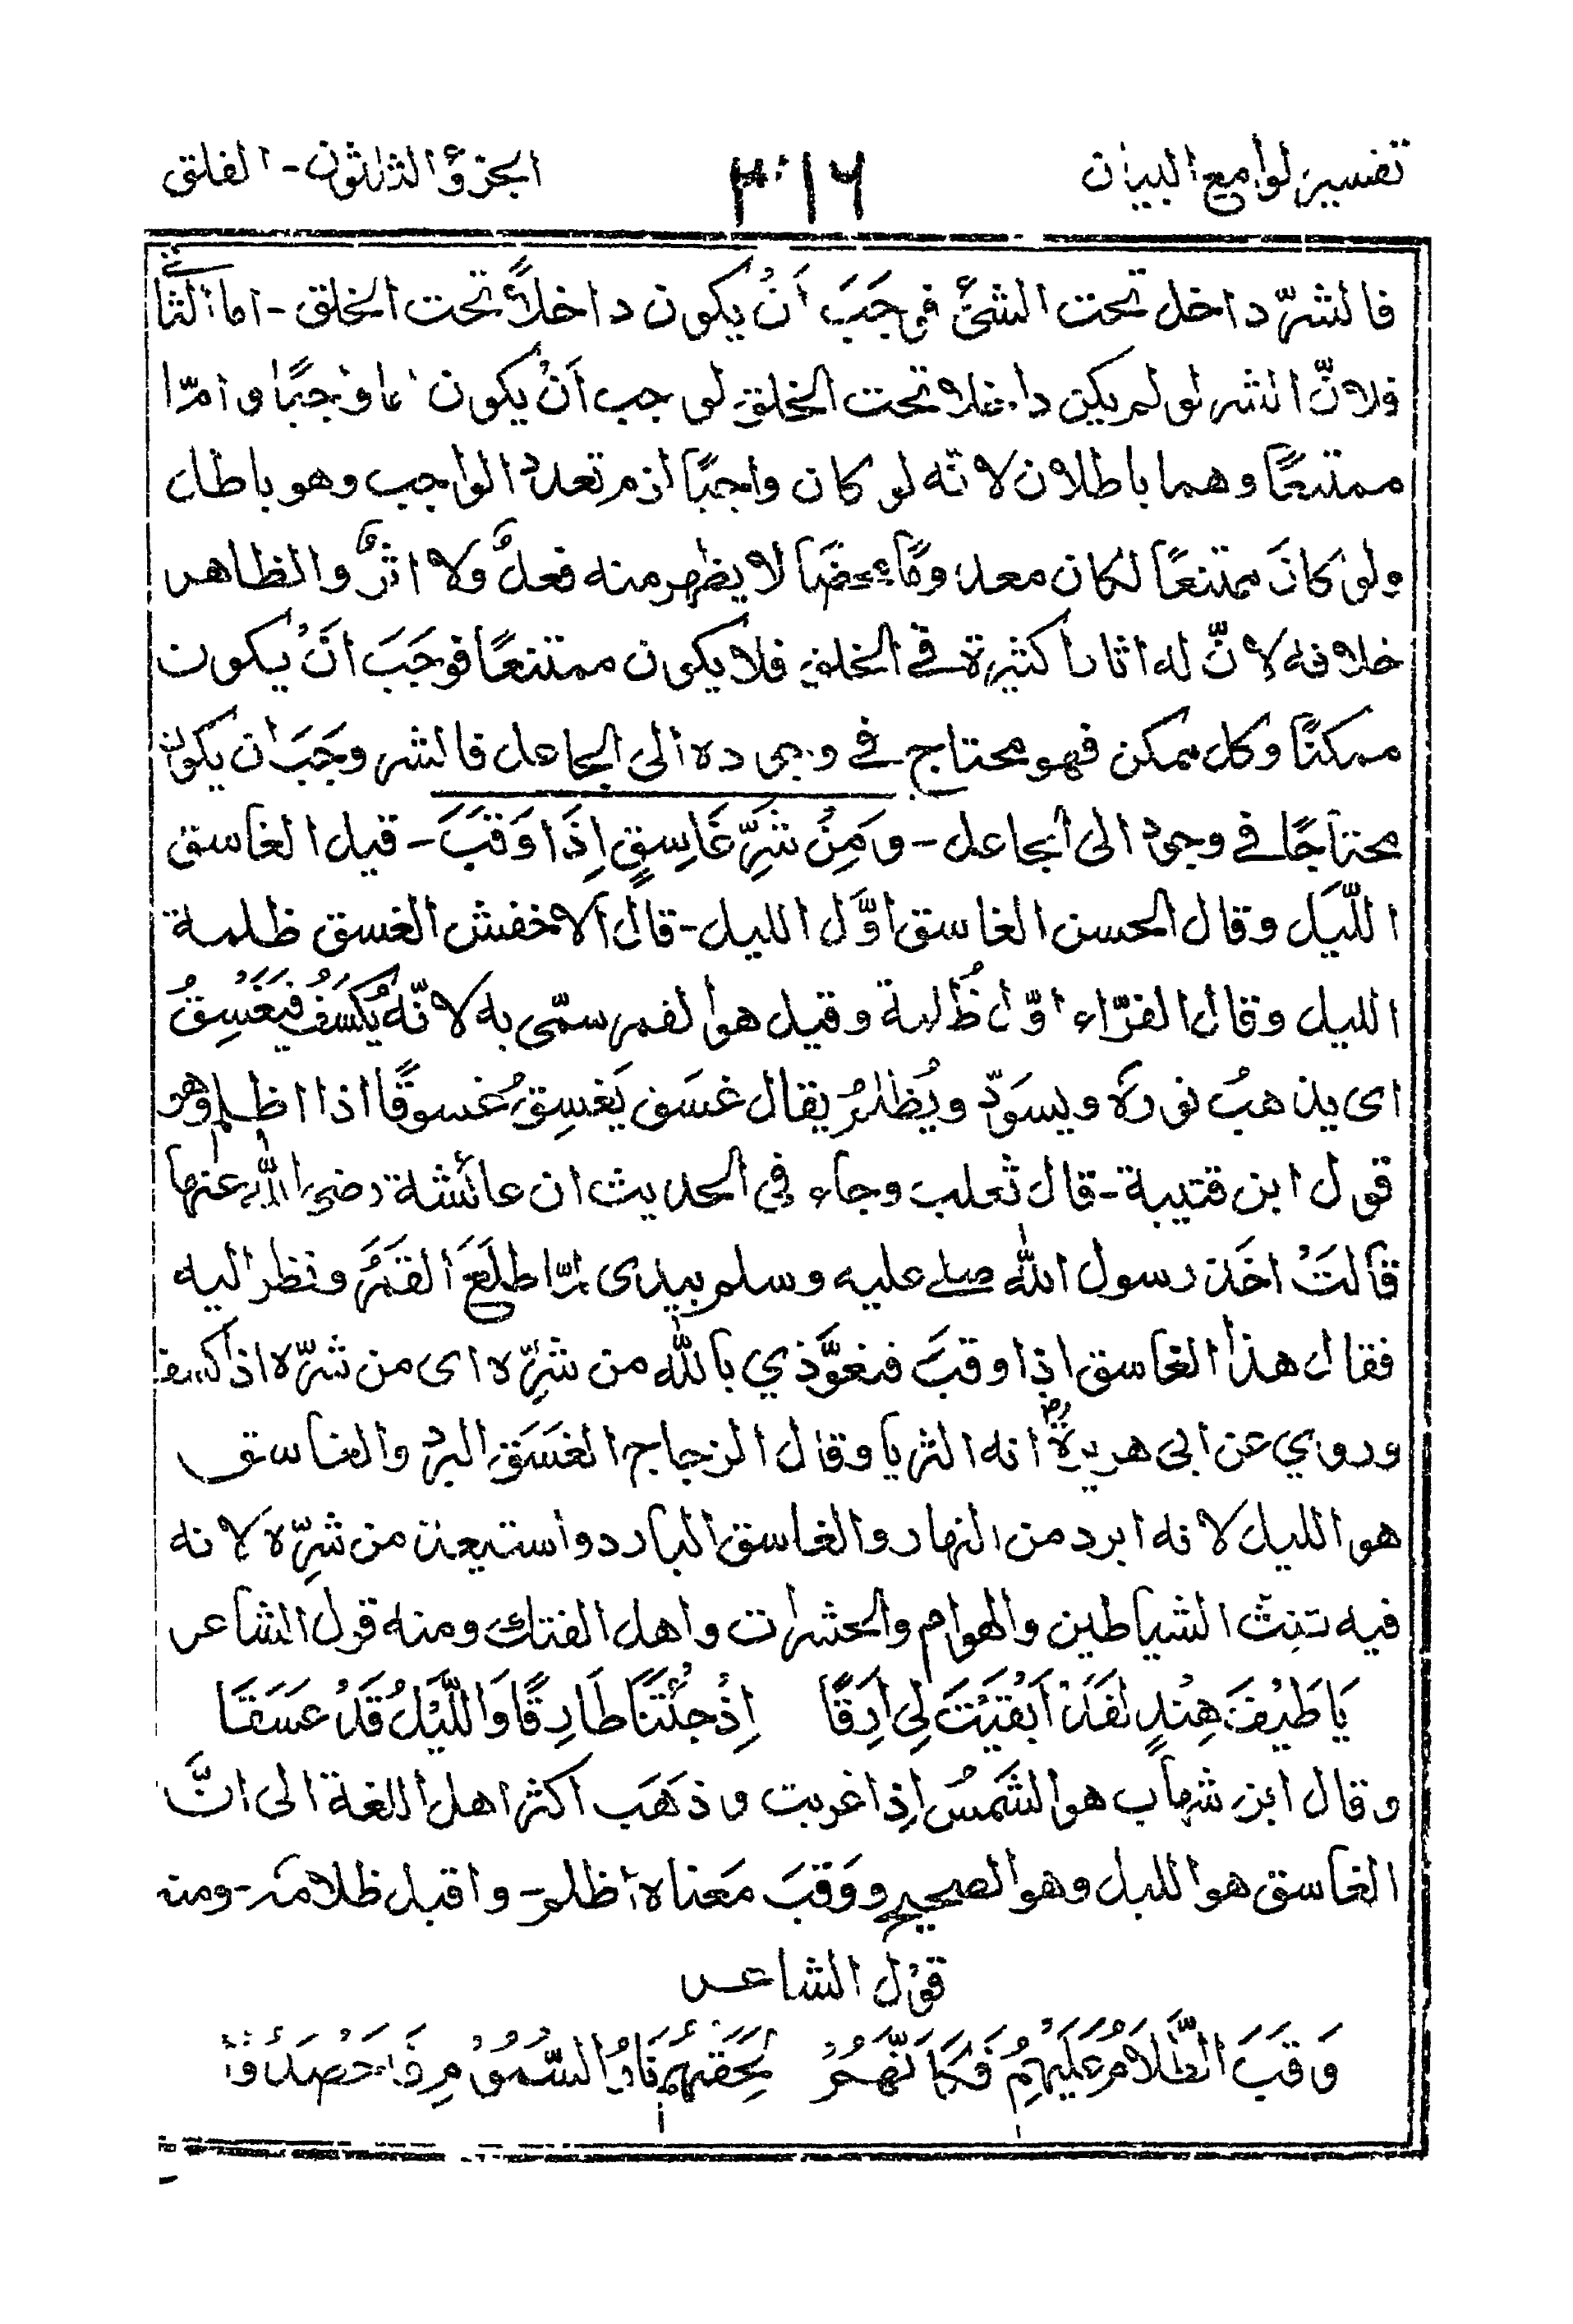 تفسير لوامع البيان
الجزؤ الثلاثون - الفلق
فالشرّ داخل تحت الشئ فوجَبَ أنْ يكون داخلاً تحت الخلق - اما الثانى
فلانّ الشر لو لم يكن داخلا تحت الخلق لوجب أنْ يكون اما واجبًا وامّا
ممتنعًا وهما باطلان لانّه لو كان واجبًا لزم تعدد الواجب وهو باطل
ولو كانَ ممتنعًا لكان معدومًا محضًا لا يظهر منه فعلٌ ولا اثرٌ والظاهر
خلافه لانّ له اثارا كثيرة فى الخلق فلا يكون ممتنعًا فوجَبَ انْ يكون
ممكنًا وكل ممكن فهو محتاج فى وجوده الى الجاعل فالشر وجَبَ ان يكون
محتاجًا فى وجوده الى الجاعل - وَمِنْ شَرِّ غَاسِقٍ اِذَا وَقَبَ - قيل الغاسق
اللّيَل وقال الحسن الغاسق اوَّل الليل - قال الاخفش الغسق ظلمة
الليل وقال الفرّاء اوّل ظُلمة وقيل هو القمر سمّى به لانّهُ يُكْسَفُ فَيَغْسِقُ
اى يذهبُ نورهُ ويسوَدّ ويُظلمُ يقال غسَق يَغسِقُ غسوقًا اذا اظلم وهو
قول ابن قتيبة - قال ثعلب وجاء فى الحديث ان عائشة رضى الله عنها
قالَتْ اخَذ رسول الله صلے عليه وسلم بيدى لمّا طلَعَ القمَرُ ونظر اليه
فقال هذا الغاسق اذا وقبَ فتعوَّذي بالله من شرِّه اى من شرّه اذا كسف
وروي عن ابى هريرةؓ انه الثريا وقال الزجاج الغَسَق البرد والغاسق
هو الليل لانه ابرد من النهار والغاسق البارد واستيعذ من شرِّه لانه
فيه تنبثّ الشياطين والهوام والحشرات واهل الفتك ومنه قول الشاعر
يَا طَيْفَ هِنْدٍ لَقَدْ اَبْقَيْتَ لِى اَرَقًا اِذْ جِئْتَنَا طَارِقًا وَاللَّيْلُ قَدْ غَسَقَا
وقال ابن شهاب هو الشَمسُ اِذا غربت وذهَب اكثر اهل اللغة الى انَّ
الغاسق هو الليل وهو الصحيح ووَقبَ مَعناه اظلم - واقبل ظلامه - ومنه
قول الشاعر
وَقَبَ الظَّلَامُ عَلَيْهِمُ فَكَاَنَّهُمْ لَحِقَتْهُمْ نَارُ السَّمُوْمِ